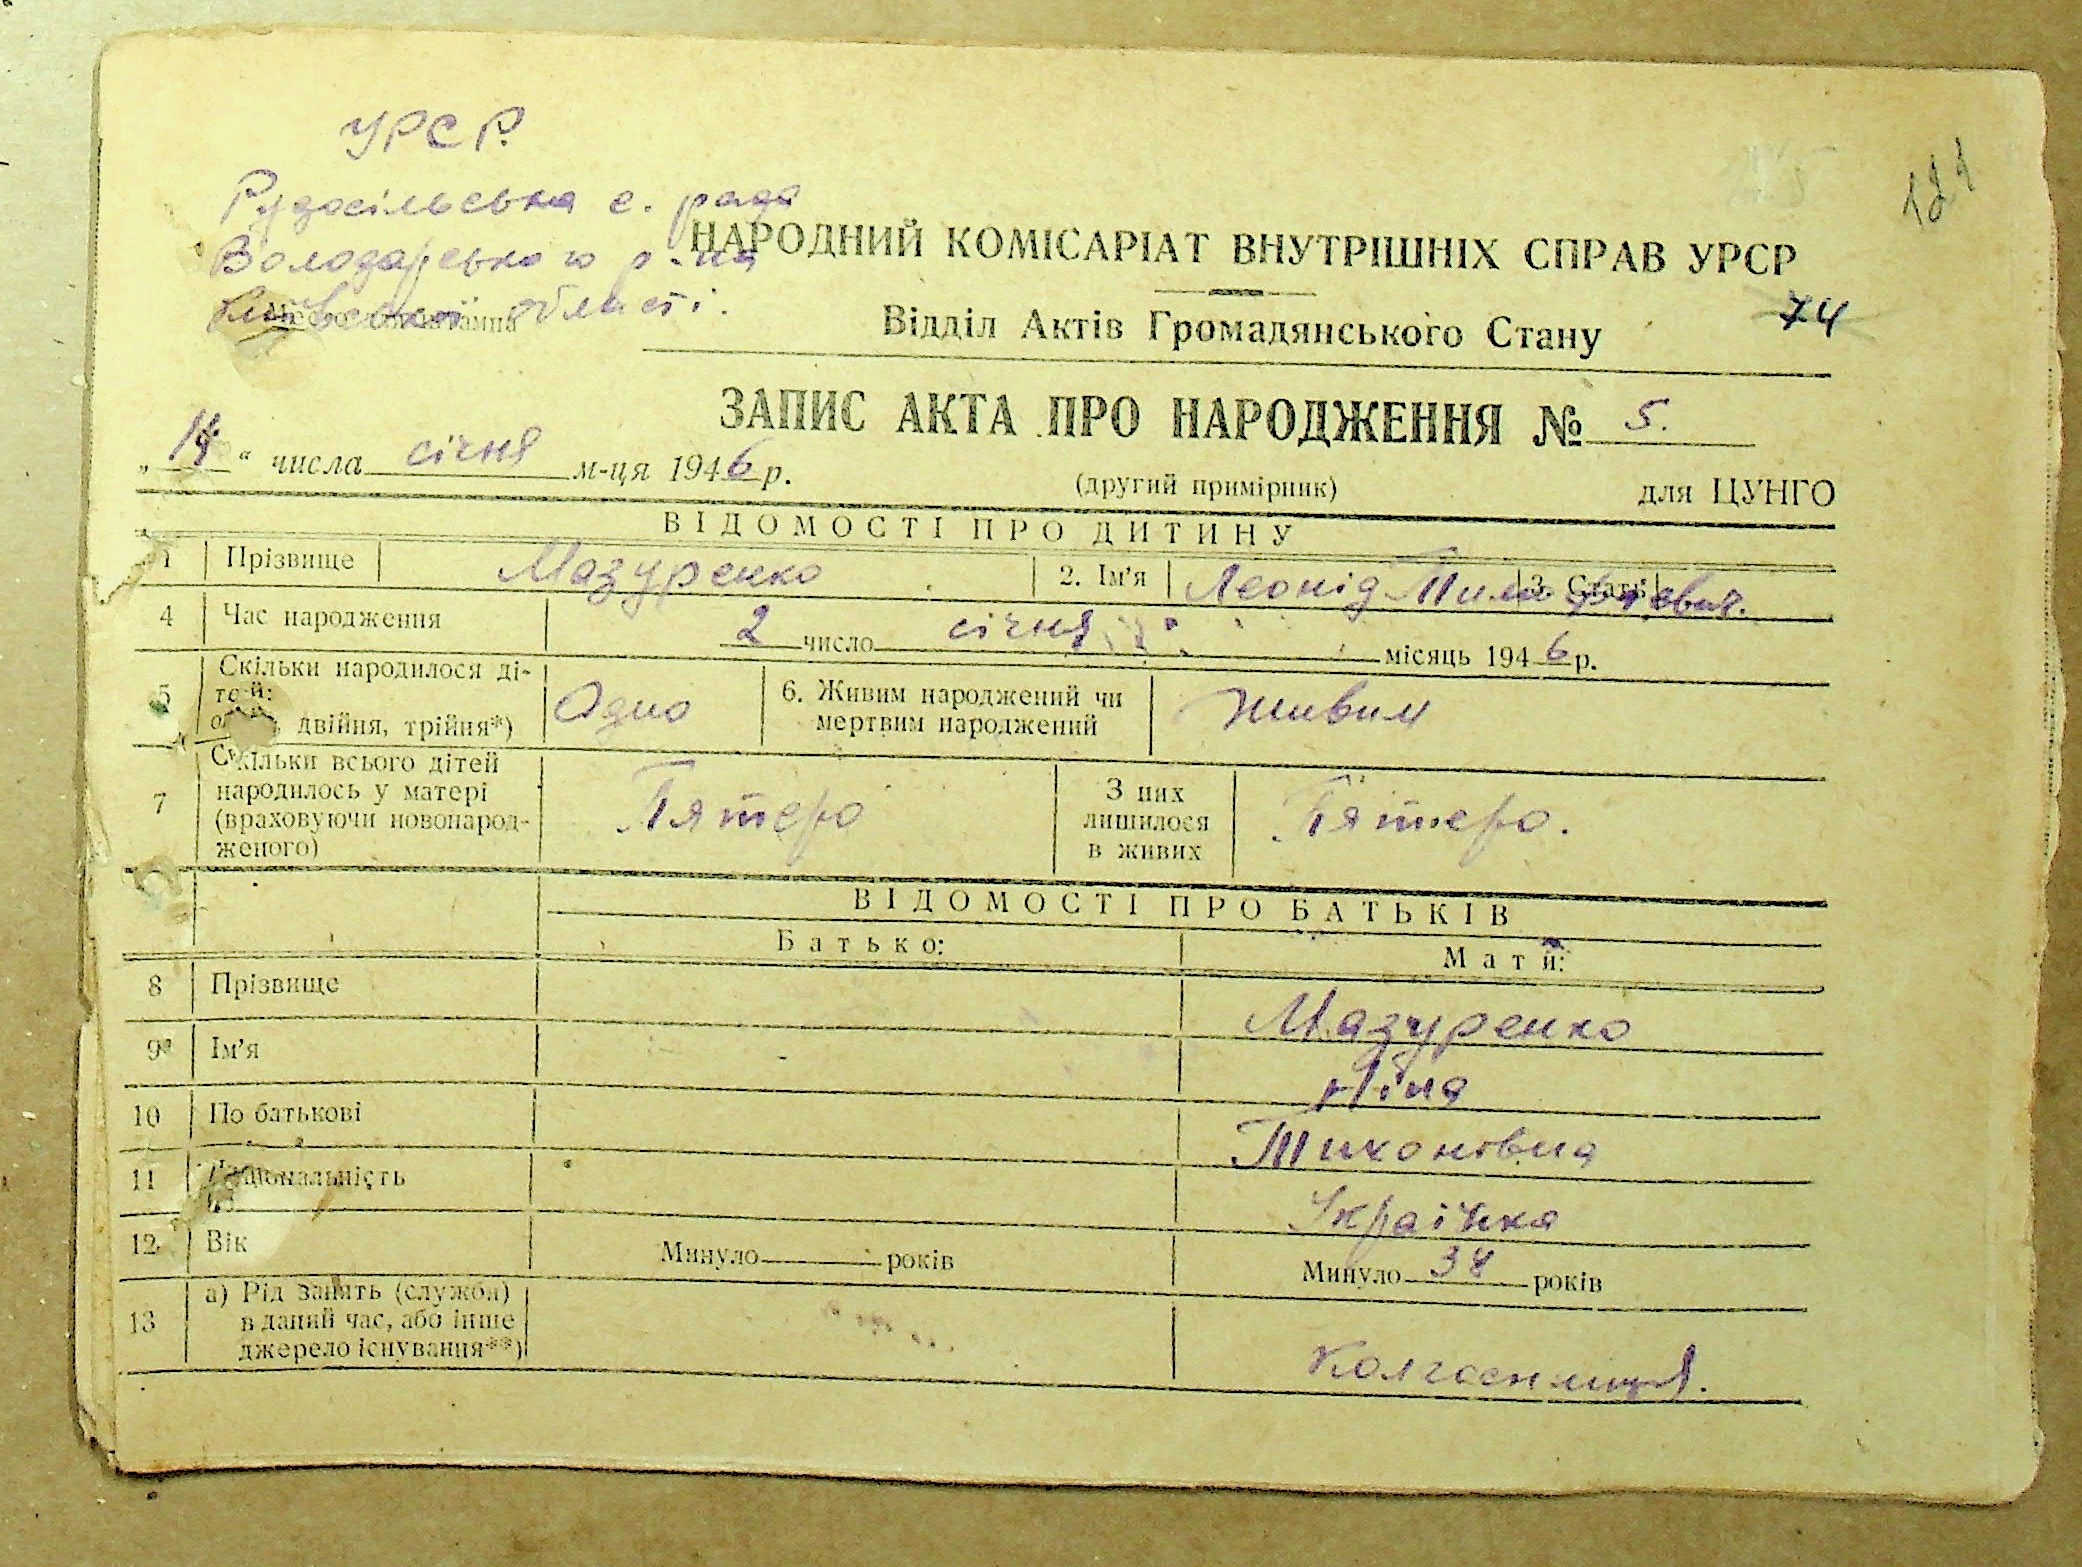 УРСР.
121
Рудосільська с. рада
Володарського р-на
Київської області.
НАРОДНИЙ КОМІСАРІАТ ВНУТРІШНІХ СПРАВ УРСР
74
Відділ Актів Громадянського Стану
ЗАПИС АКТА ПРО НАРОДЖЕННЯ № 5.
„14“ числа січня м-ця 1946 р.
(другий примірник) для ЦУНГО
ВІДОМОСТІ ПРО ДИТИНУ
1 Прізвище Мазуренко 2. Ім'я Леонід 3. Стать
4 Час народження 2 число січня місяць 1946 р.
5 Скільки народилося ді-
тей:
двійня, трійня*) Одно 6. Живим народжений чи
мертвим народжений Живим
7 Скільки всього дітей
народилось у матері
(враховуючи новонарод-
женого) Пятеро З них
лишилося
в живих Пятеро.
ВІДОМОСТІ ПРО БАТЬКІВ
Батько: Мати:
8 Прізвище Мазуренко
9 Ім'я Ніна
10 По батькові Тихоновна
11 Національність Українка
12 Вік Минуло років Минуло 34 років
13 а) Рід занять (служби)
в даний час, або інше
джерело існування**) Колгоспниця.